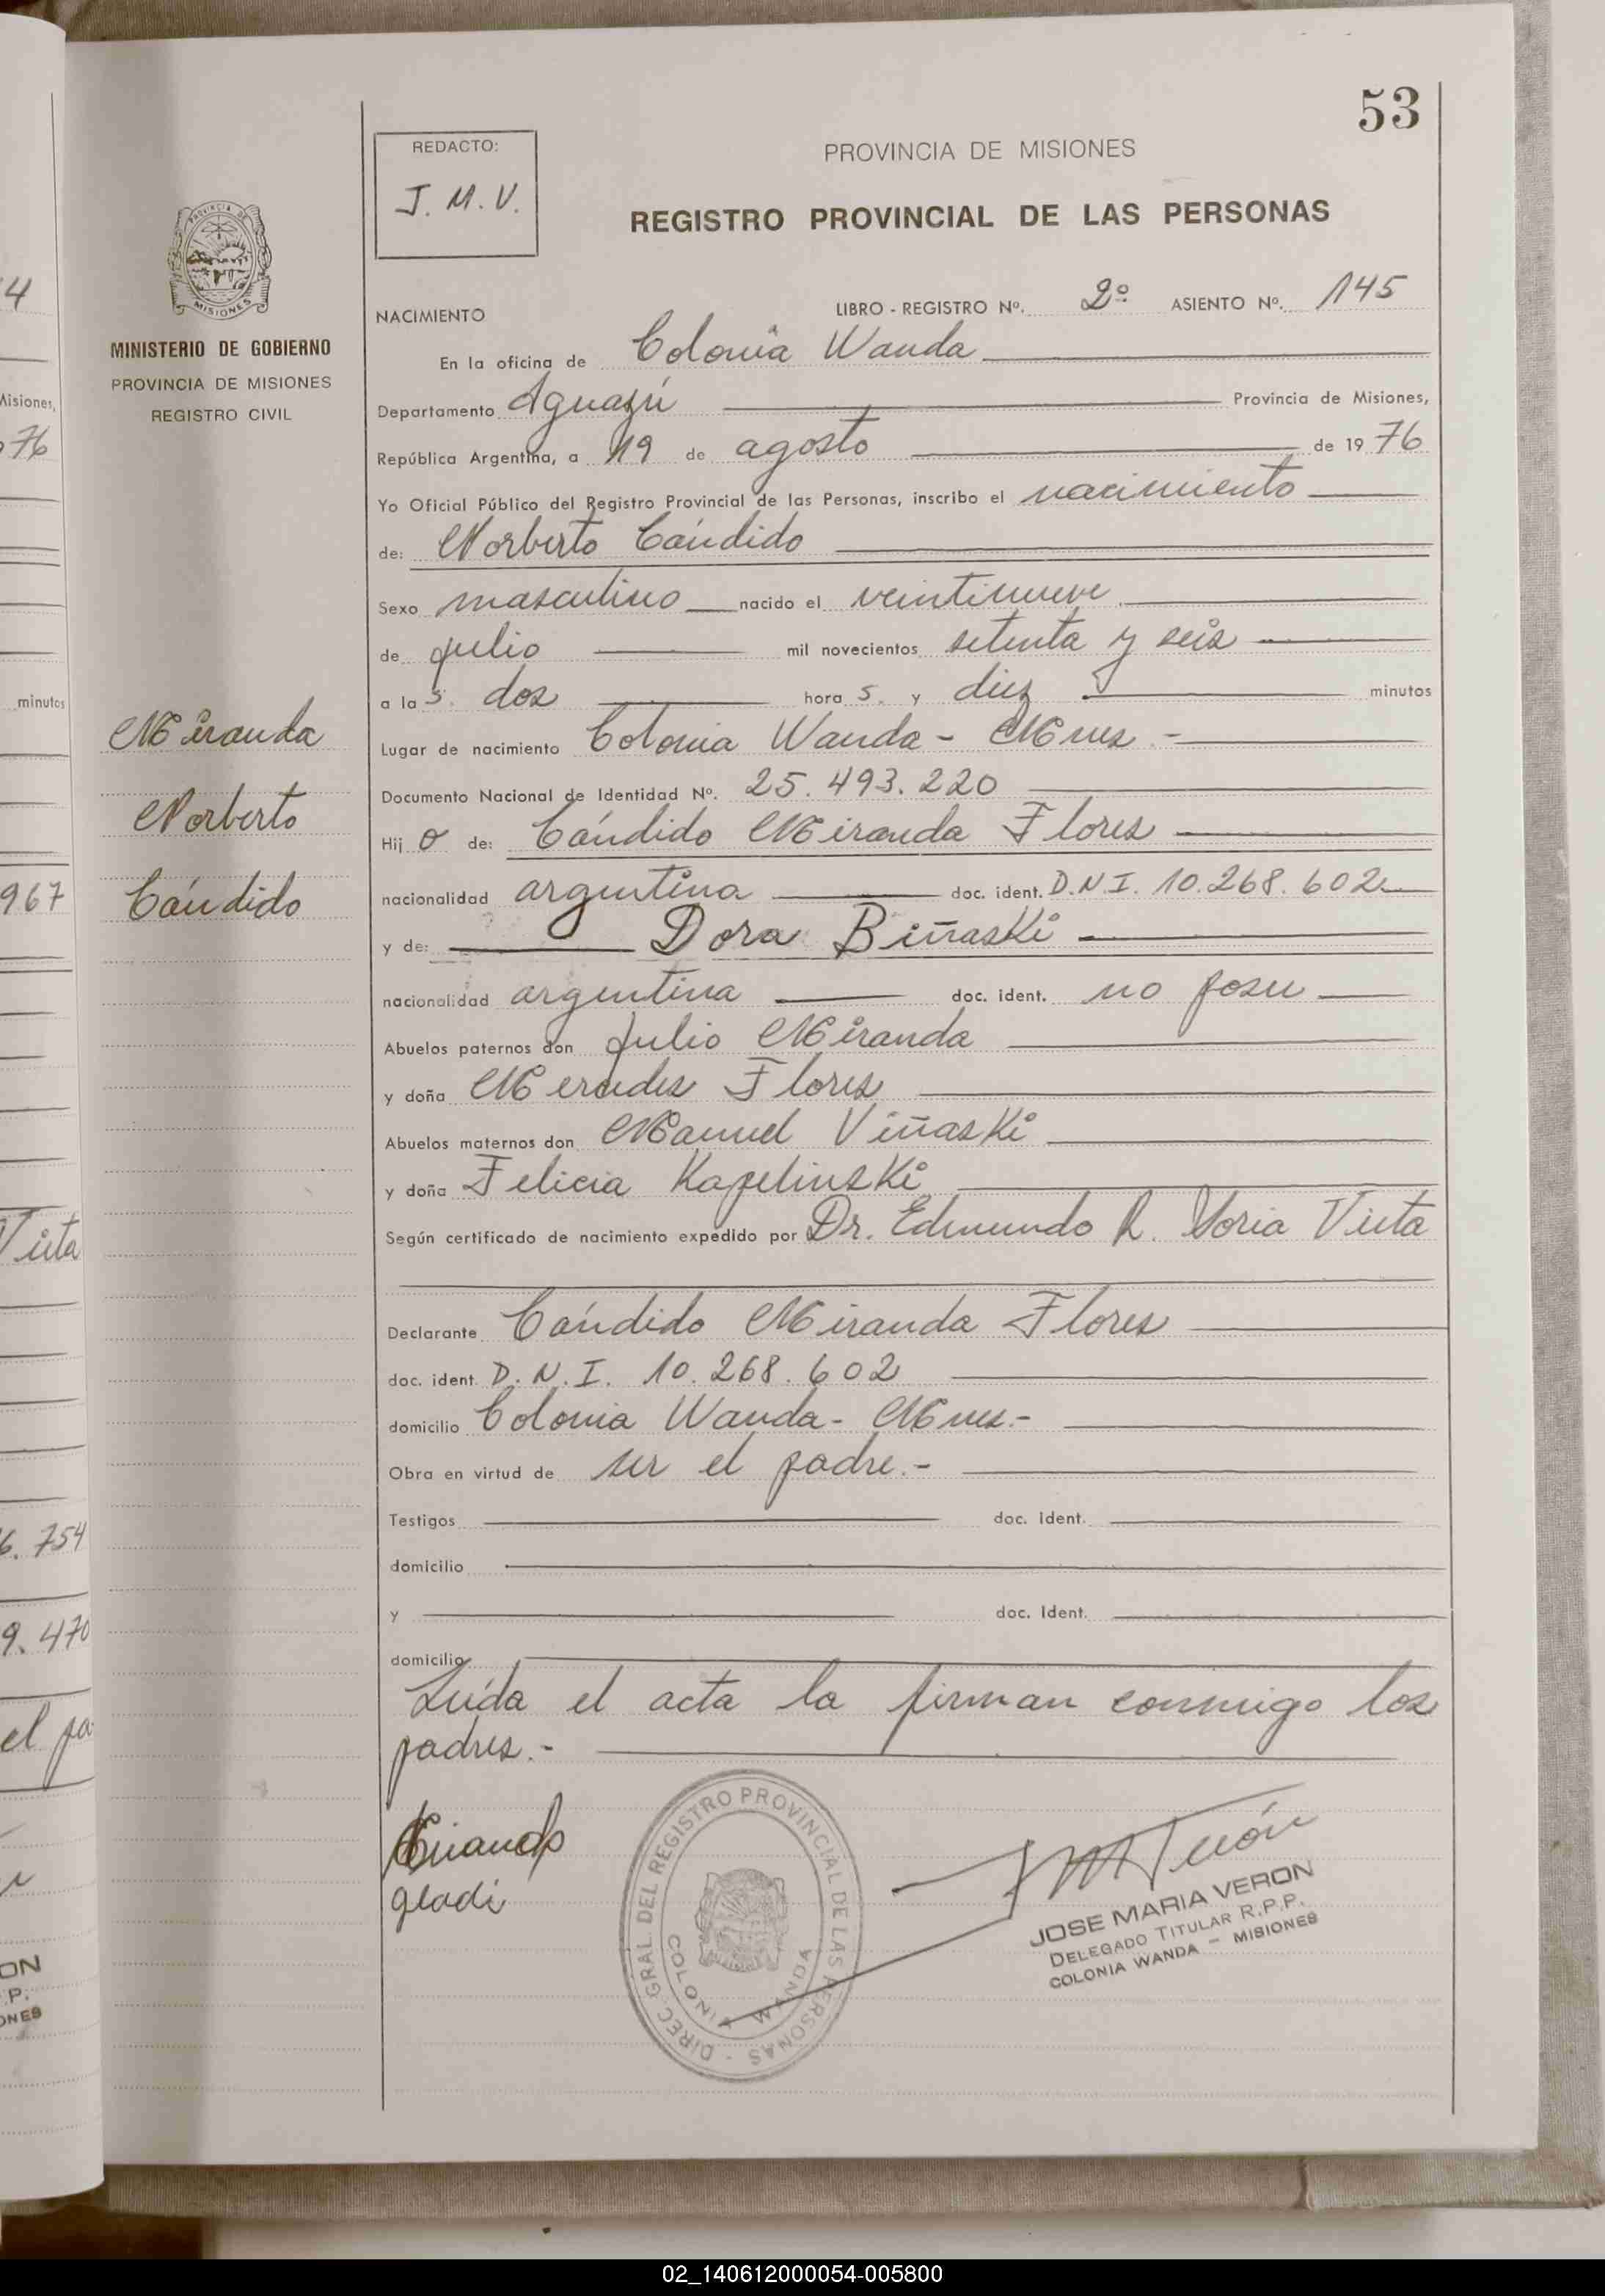 53
REDACTO:
J. M. V.
PROVINCIA DE MISIONES
REGISTRO PROVINCIAL DE LAS PERSONAS
PROVINCIA DE
MISIONES
MINISTERIO DE GOBIERNO
PROVINCIA DE MISIONES
REGISTRO CIVIL
NACIMIENTO LIBRO - REGISTRO Nº. 2º ASIENTO Nº. 145
En la oficina de Colonia Wanda
Departamento Iguazú Provincia de Misiones,
República Argentina, a 19 de agosto de 1976
Yo Oficial Público del Registro Provincial de las Personas, inscribo el nacimiento
de: Norberto Cándido
Sexo masculino nacido el veintinueve
de julio mil novecientos setenta y seis
a las dos horas y diez minutos
Lugar de nacimiento Colonia Wanda - Mnes.-
Documento Nacional de Identidad Nº. 25.493.220
Hijo de: Cándido Miranda Flores
nacionalidad argentina doc. ident. D.N.I. 10.268.602
y de: Dora Biñaski
nacionalidad argentina doc. ident. no posee
Abuelos paternos don Julio Miranda
y doña Mercedes Flores
Abuelos maternos don Manuel Viñaski
y doña Felicia Kapelinski
Según certificado de nacimiento expedido por Dr. Edmundo R. Soria Vieta
Declarante Cándido Miranda Flores
doc. ident. D.N.I. 10.268.602
domicilio Colonia Wanda - Mnes.-
Obra en virtud de ser el padre.-
Testigos doc. ident.
domicilio
y doc. ident.
domicilio
Leída el acta la firman conmigo los
padres.-
Miranda
Norberto
Cándido
DIREC. GRAL. DEL REGISTRO PROVINCIAL DE LAS PERSONAS -
COLONIA WANDA
JOSE MARIA VERON
DELEGADO TITULAR R.P.P.
COLONIA WANDA - MISIONES
4
Misiones,
76
minutos
967
Vieta
6. 754
9. 470
el pa
ON
.P.
ONES
02_140612000054-005800